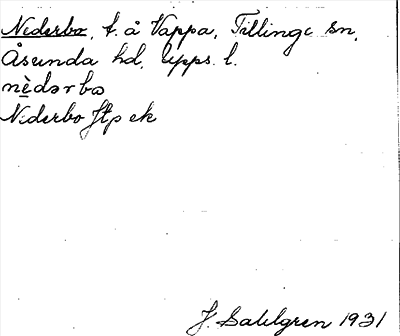 Nederbo, t. å Vappa, Tillinge sn,
Åsunda hd, Upps. l.
nèdərbo
Nederbo Jtp ek
J. Sahlgren 1931